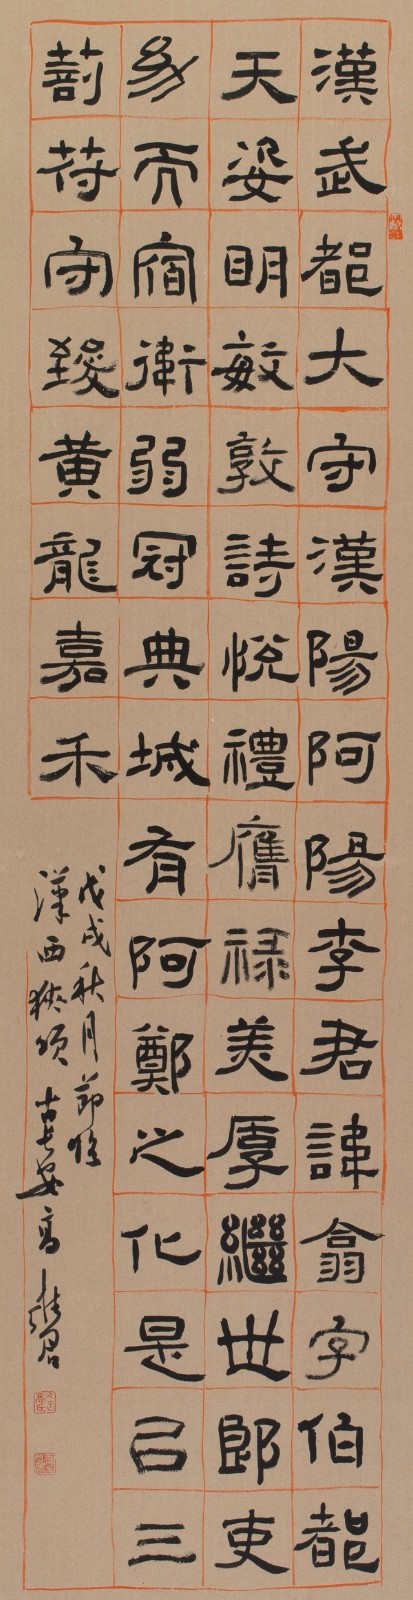 漢武都大守漢陽阿陽李君諱翕字伯都
天姿明敏敦詩悅禮膺祿美厚繼世郎吏
幼而宿衛弱冠典城有阿鄭之化是以三
剖符守致黃龍嘉禾
戊戌秋月節臨
漢西狹頌 古長安高